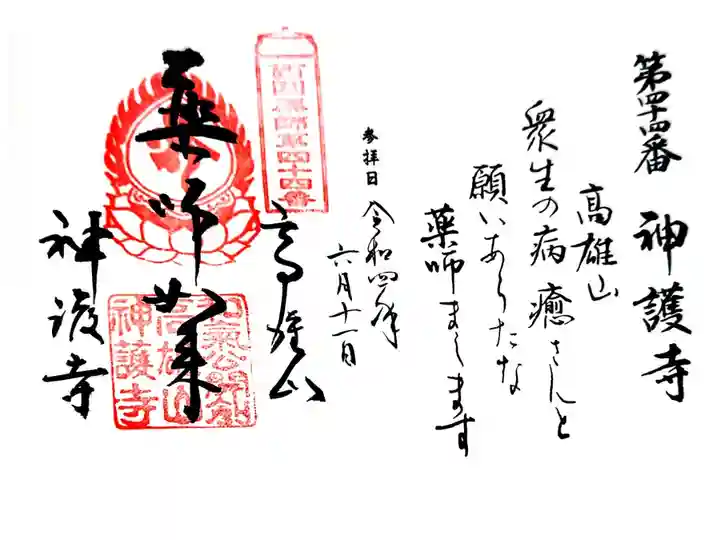 第四十四番 神護寺
高雄山
衆生の病癒さんと
願いあらたな
薬師まします
参拝日 令和四年
六月十一日
西国薬師第四十四番
高雄山
薬師如来
神護寺
和氣公
高雄山
神護寺